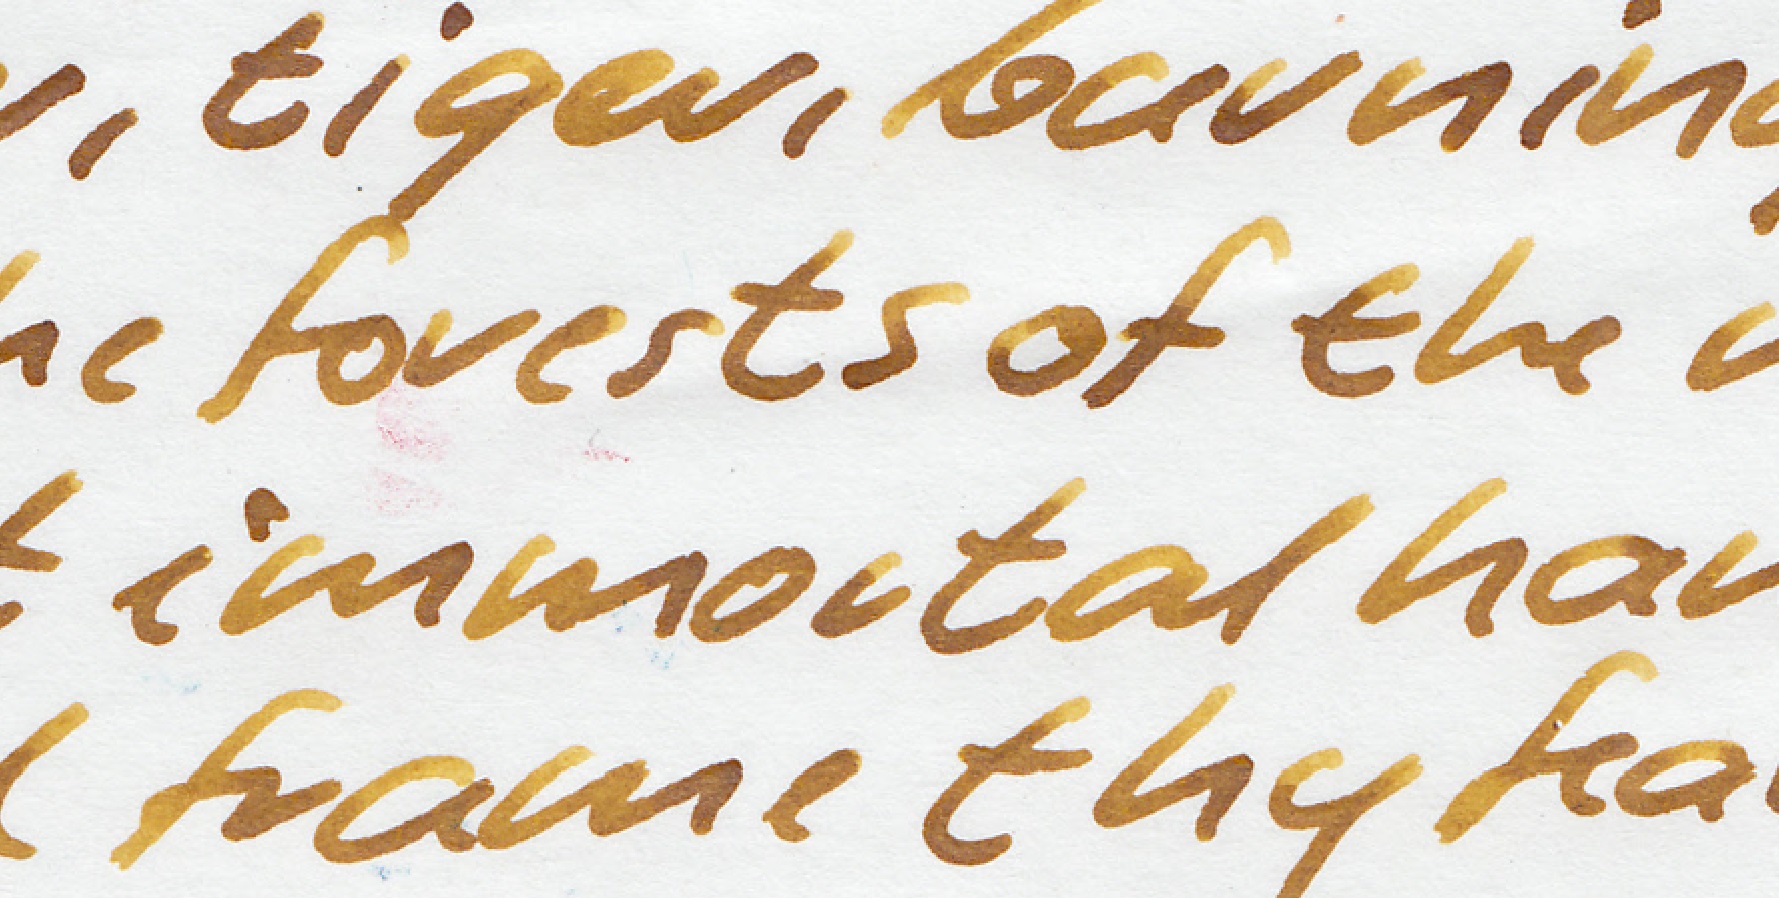 r, tiger, burning
he forests of the n
t immortal han
d frame thy fear